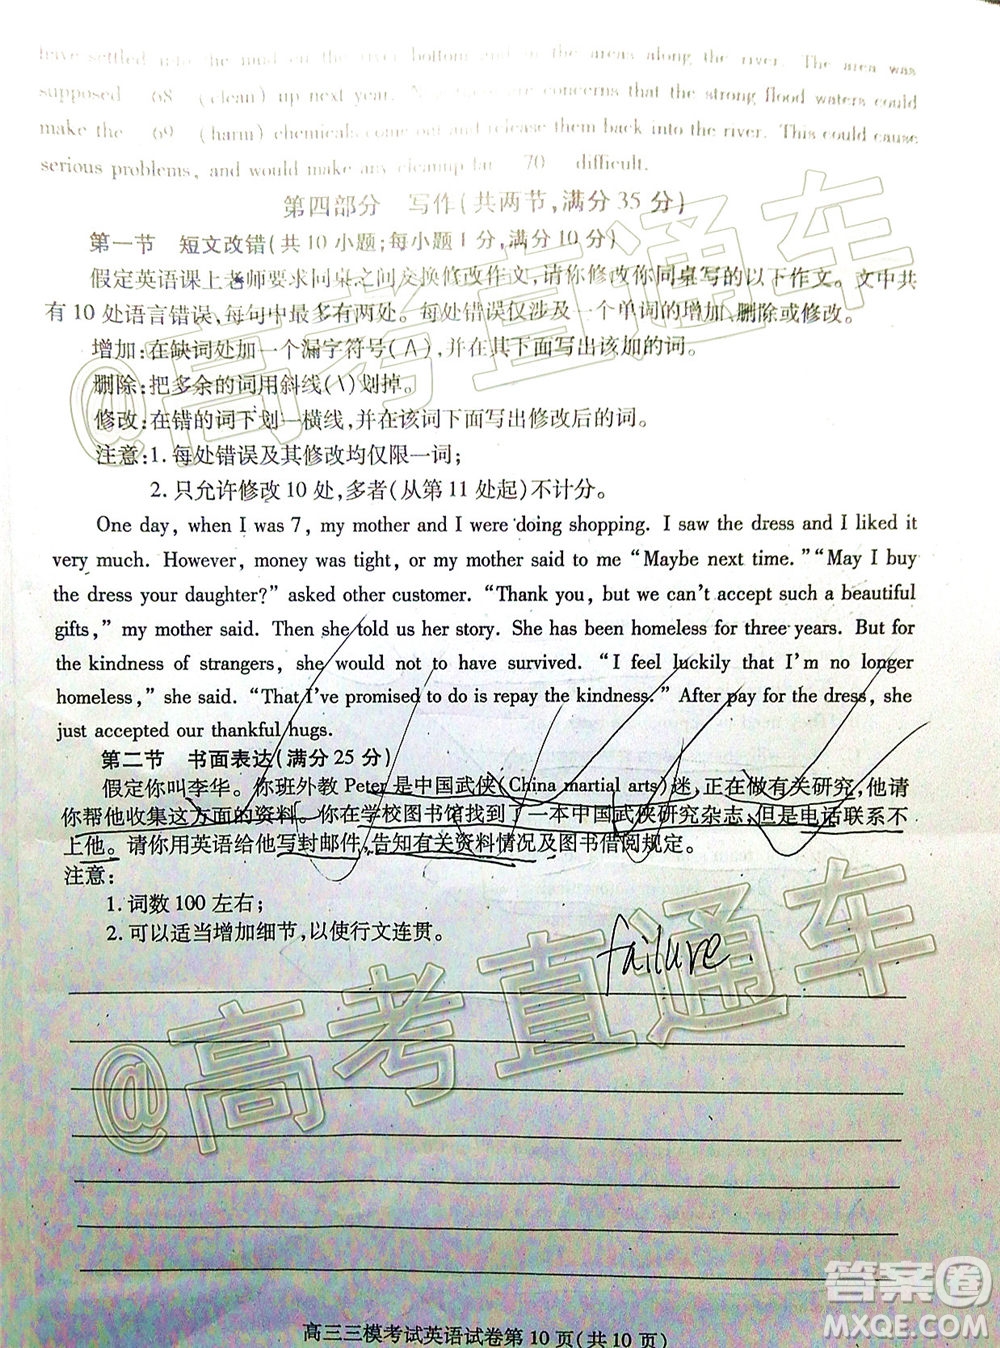 have settled into the mud on the river bottom and in the areas along the river. The area was
supposed 68 (clean) up next year. Now there are concerns that the strong flood waters could
make the 69 (harm) chemicals come out and release them back into the river. This could cause
serious problems, and would make any cleanup far 70 difficult.
第四部分 写作(共两节,满分35分)
第一节 短文改错(共10小题;每小题1分,满分10分)
假定英语课上老师要求同桌之间交换修改作文,请你修改你同桌写的以下作文。文中共
有10处语言错误,每句中最多有两处。每处错误仅涉及一个单词的增加、删除或修改。
增加:在缺词处加一个漏字符号(∧),并在其下面写出该加的词。
删除:把多余的词用斜线(\)划掉。
修改:在错的词下划一横线,并在该词下面写出修改后的词。
注意:1. 每处错误及其修改均仅限一词;
2. 只允许修改10处,多者(从第11处起)不计分。
One day, when I was 7, my mother and I were doing shopping. I saw the dress and I liked it
very much. However, money was tight, or my mother said to me “Maybe next time.”“May I buy
the dress your daughter?” asked other customer. “Thank you, but we can't accept such a beautiful
gifts,” my mother said. Then she told us her story. She has been homeless for three years. But for
the kindness of strangers, she would not to have survived. “I feel luckily that I'm no longer
homeless,” she said. “That I've promised to do is repay the kindness.” After pay for the dress, she
just accepted our thankful hugs.
第二节 书面表达(满分25分)
假定你叫李华。你班外教Peter是中国武侠(China martial arts)迷,正在做有关研究,他请
你帮他收集这方面的资料。你在学校图书馆找到了一本中国武侠研究杂志,但是电话联系不
上他。请你用英语给他写封邮件,告知有关资料情况及图书借阅规定。
注意:
1. 词数100左右;
2. 可以适当增加细节,以使行文连贯。
failure.
@高考直通车
@高考直通车
高三三模考试英语试卷第10页(共10页)
答案圈
MXQE.COM